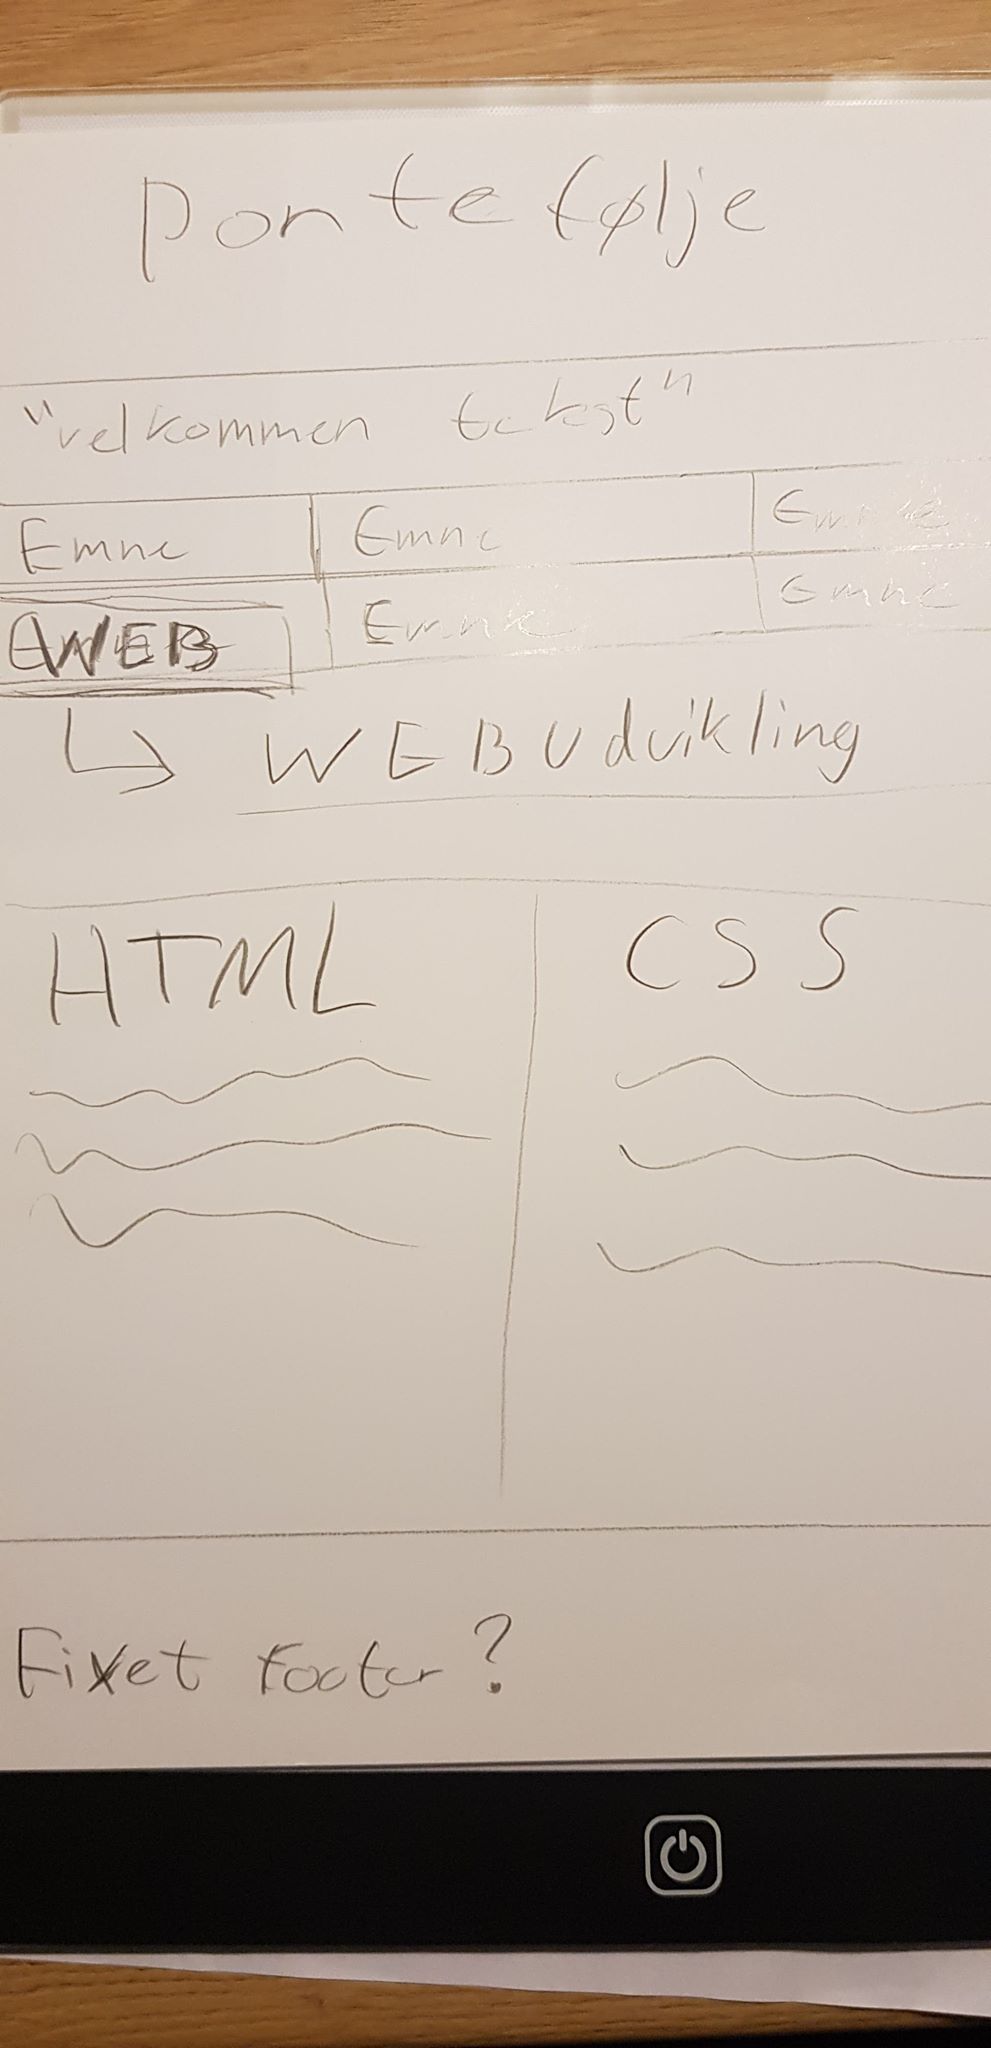 portefølje
"velkommen tekst"
Emne Emne Emne
WEB Emne Emne
WEBUdvikling
HTML CSS
Fixet footer?